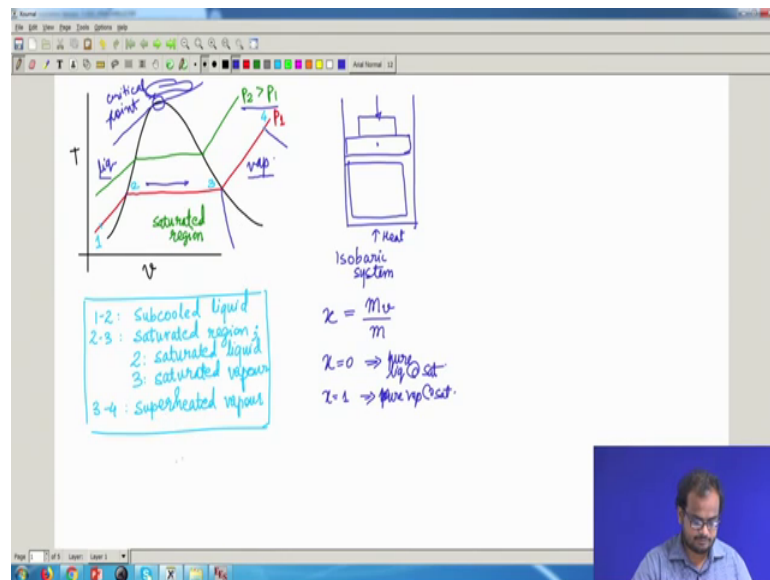 Xournal
File Edit View Page Tools Options Help
Arial Normal 12
critical
point
P2 > P1
4 P1
T
liq
vap.
2
3
saturated
region
1
v
↑ Heat
Isobaric
system
1-2: Subcooled liquid
2-3: saturated region;
2: saturated liquid
3: saturated vapour
3-4: Superheated vapour
x = Mv / m
x=0 ⇒ pure liq @ sat.
x=1 ⇒ pure vap @ sat.
Page 1 of 5 Layer: Layer 1